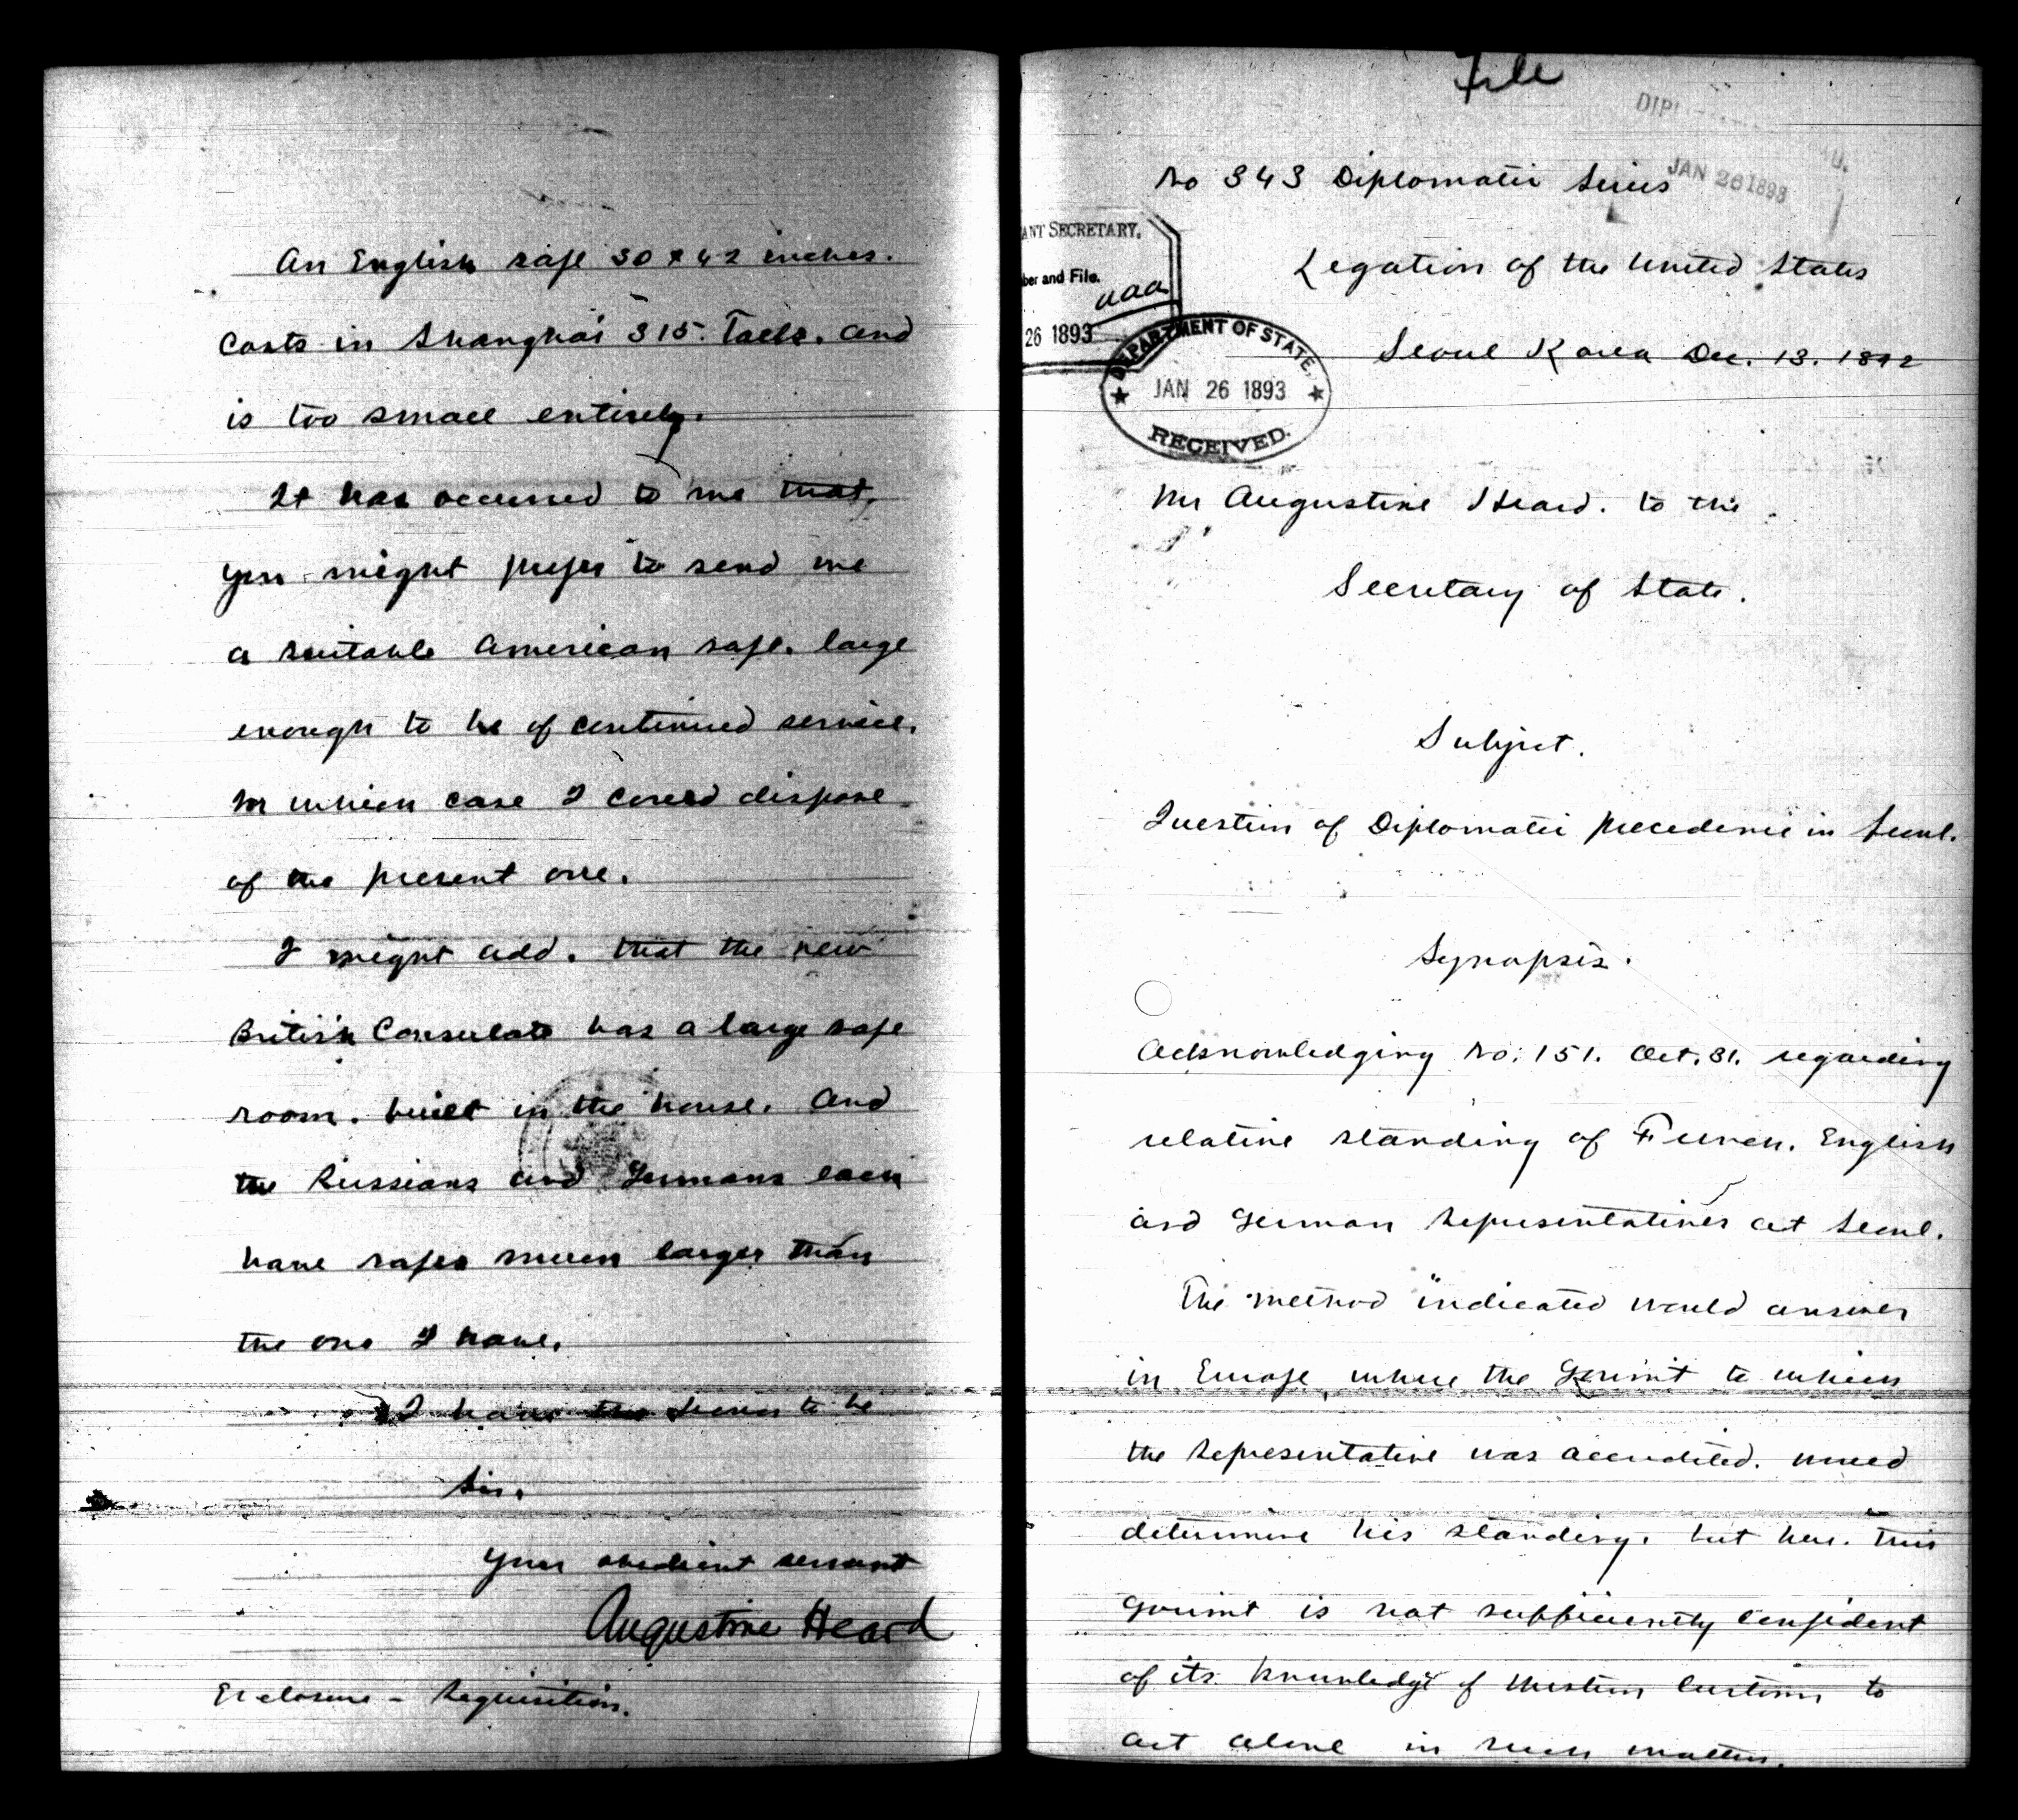 An English safe 30 x 42 inches.
costs in Shanghai 315. Taels. and
is too small entirely.
It has occurred to me that,
you might prefer to send me
a suitable American safe. large
enough to be of continued service.
in which case I could dispose
of the present one.
I might add. that the new
British Consulate has a large safe
room. built in the house. and
the Russians and Germans each
have safes much larger than
the one I have.
I have the honor to be
Sir.
Your obedient servant
Augustine Heard
Enclosure - Requisition.
File
DIPL
JAN 26 1893
No 343 Diplomatic Series
ANT SECRETARY,
ber and File.
aaa
26 1893
Legation of the United States
Seoul Korea Dec. 13. 1892
DEPARTMENT OF STATE,
JAN 26 1893
RECEIVED.
Mr Augustine Heard. to the
Secretary of State.
Subject.
Question of Diplomatic precedence in Seoul.
Synopsis.
Acknowledging No. 151. Oct. 31. regarding
relative standing of French. English
and German Representatives at Seoul.
The method indicated would answer
in Europe, where the Govmt to which
the Representative was accredited. would
determine his standing. but here. this
Govmt is not sufficiently confident
of its knowledge of Western Customs to
act alone in such matters.